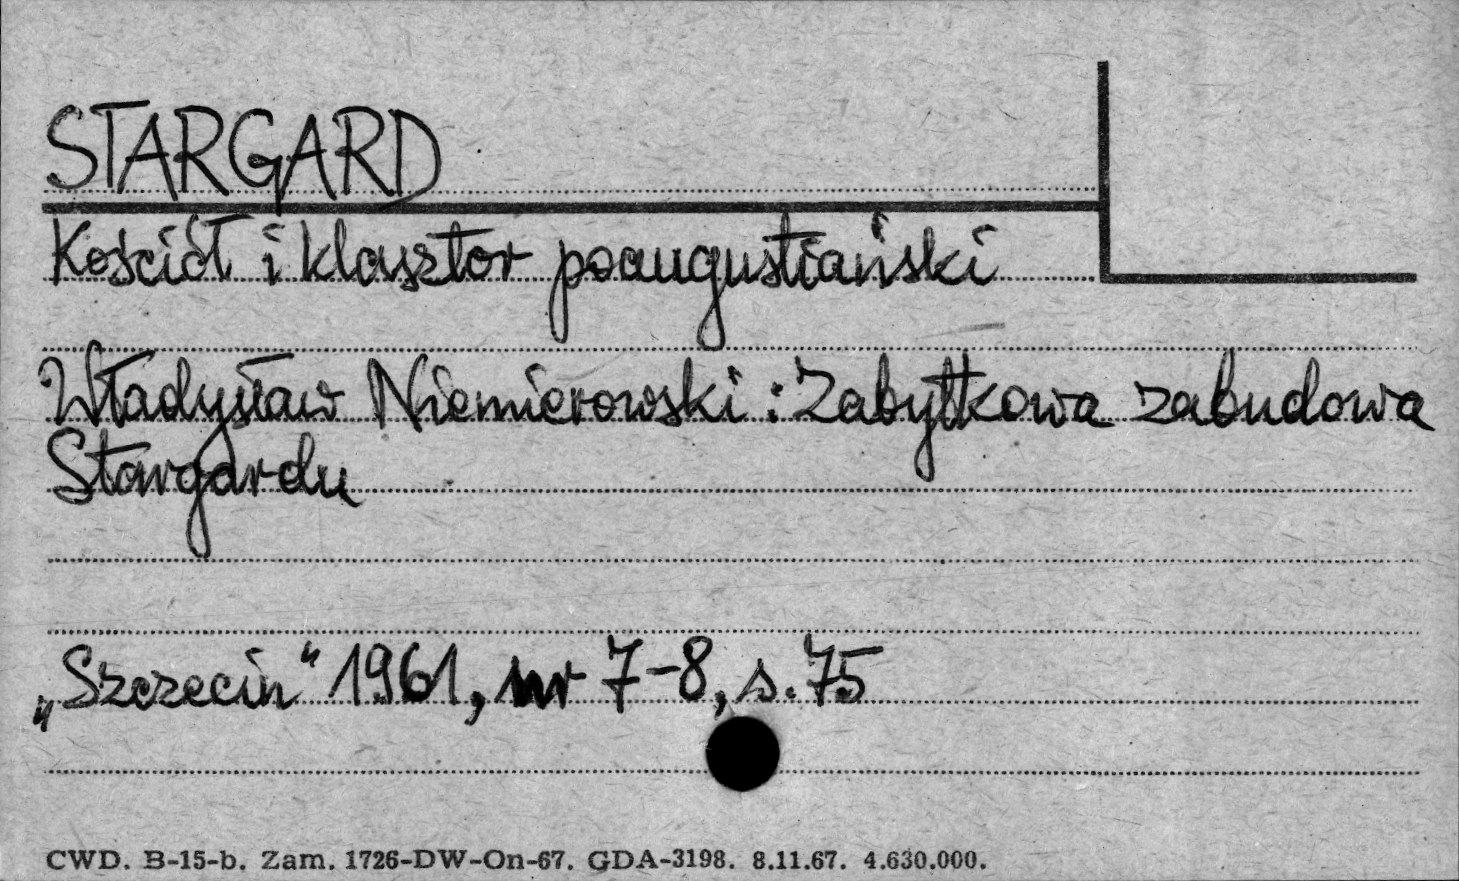 STARGARD
Kościół i klasztor poaugustiański
Władysław Niemierowski : Zabytkowa zabudowa
Stargardu
„Szczecin" 1961, nr 7-8, s. 75
CWD. B-15-b. Zam. 1726-DW-On-67. GDA-3198. 8.11.67. 4.630.000.